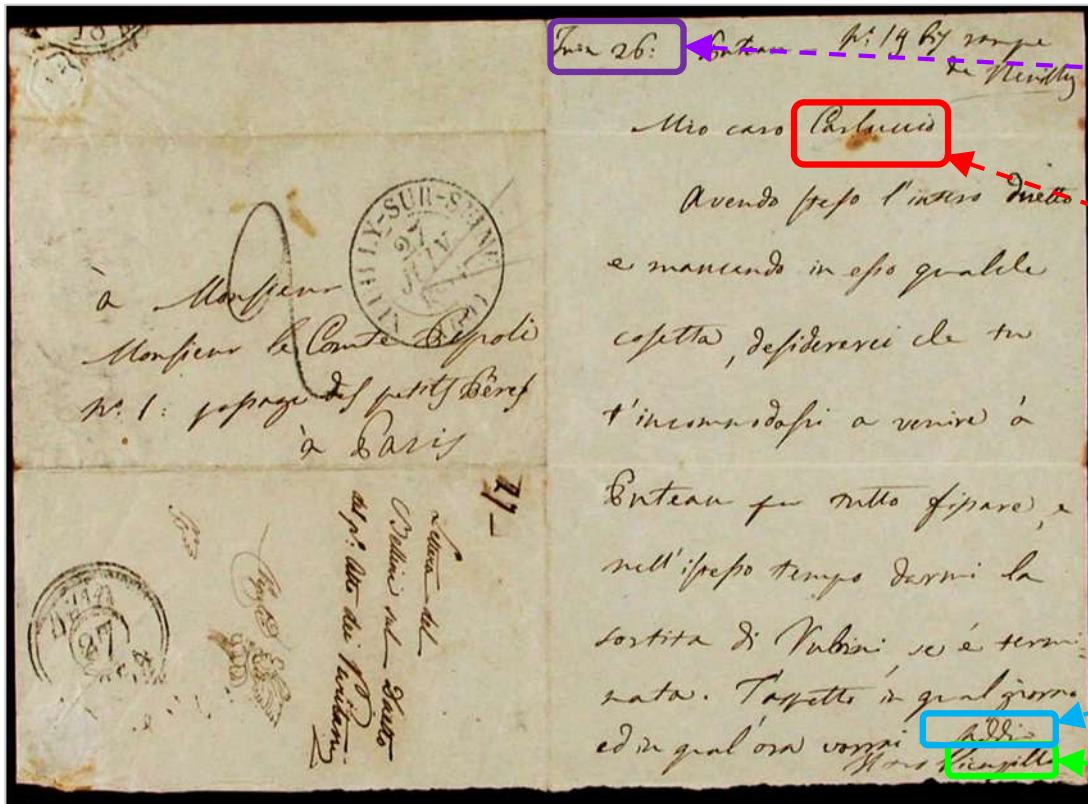 à Monsieur
Monsieur le Comte Pepoli
n.º 1: passage des petits Pères
à Paris
2
NEUILLY-SUR-SEINE
27
JUIN
27
Lettera del
Bellini sul Duetto
del p.º Atto dei Puritani
Juin 26: Puteau n.º 19 bis rampe
de Neuilly
Mio caro Carluccio
Avendo steso l'intero duetto
e mancando in esso qualche
cosetta, desidererei che tu
t'incommodassi a venire à
Puteau per tutto fissare, e
nell'istesso tempo darmi la
sortita di Rubini, se è termi-
nata. T'aspetto in qual giorno
ed in qual'ora vorrai Addio
Vicenzillo